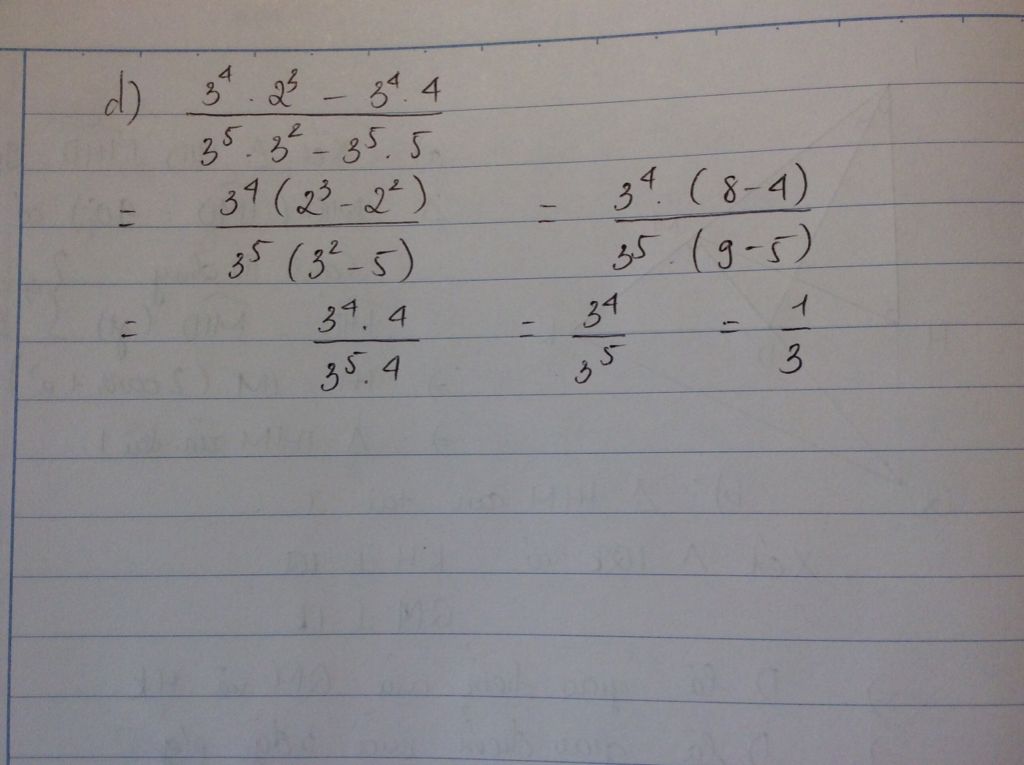 d) (3⁴ . 2³ − 3⁴ . 4) / (3⁵ . 3² − 3⁵ . 5)
= 3⁴ (2³ − 2²) / 3⁵ (3² − 5) = 3⁴ . (8 − 4) / 3⁵ . (9 − 5)
= 3⁴ . 4 / 3⁵ . 4 = 3⁴ / 3⁵ = 1 / 3